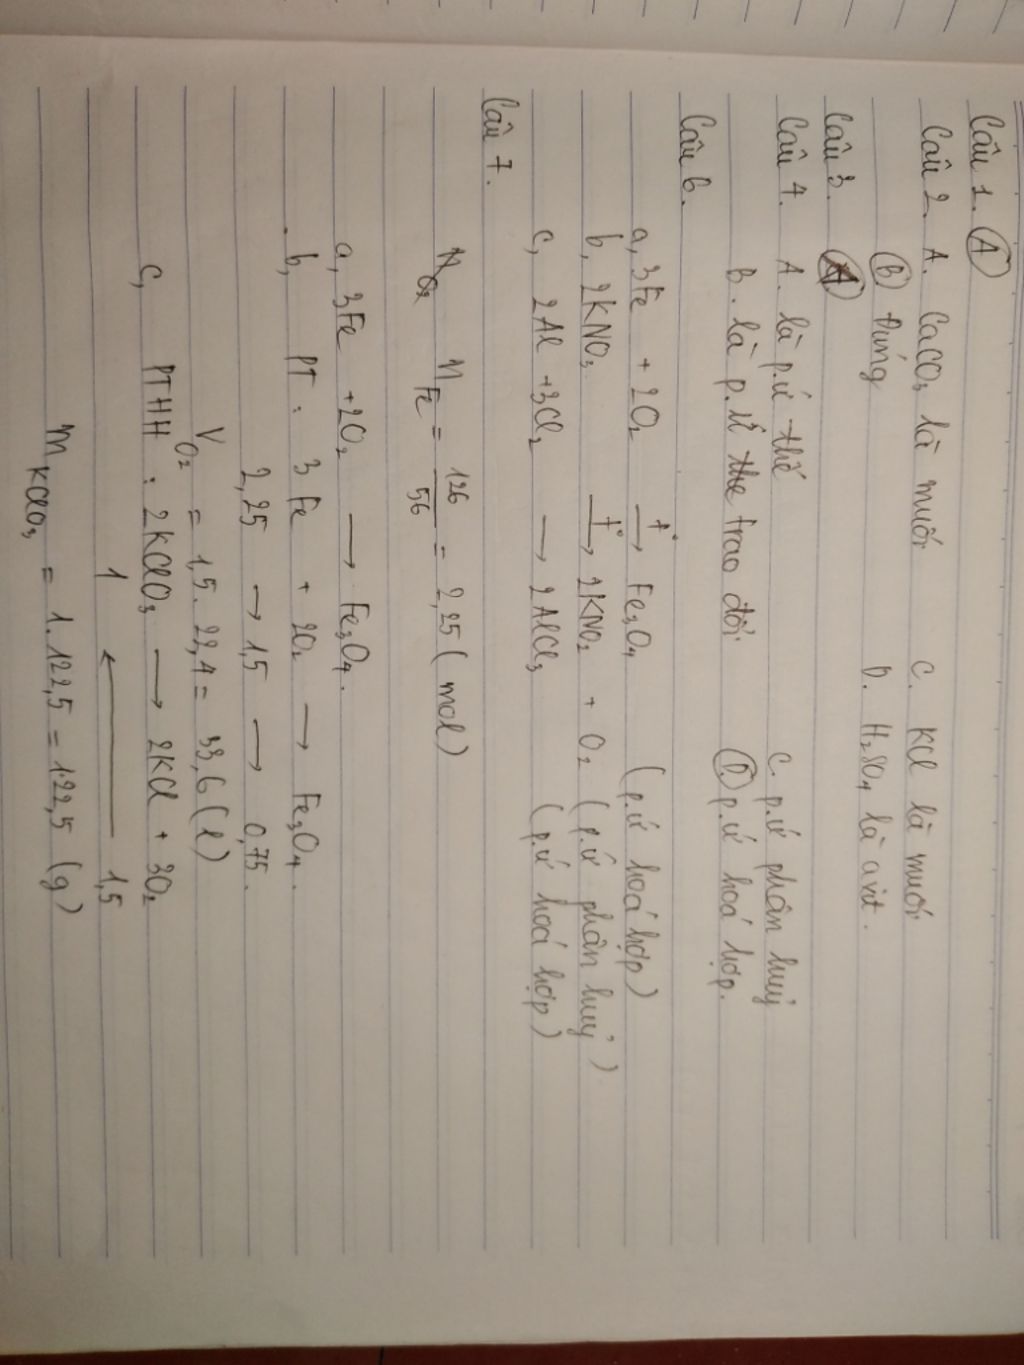 Câu 1. A
Câu 2. A. CaCO₃ là muối C. KCl là muối
B Đúng D. H₂SO₄ là axit.
Câu 3. A
Câu 4. A. là p.ứ thế C. p.ứ phân huỷ
B. là p.ứ the trao đổi D. p.ứ hoá hợp.
Câu 6.
a, 3Fe + 2O₂ —t°→ Fe₃O₄ (p.ứ hoá hợp)
b, 2KNO₃ —t°→ 2KNO₂ + O₂ (p.ứ phân huỷ)
c, 2Al + 3Cl₂ → 2AlCl₃ (p.ứ hoá hợp)
Câu 7.
n Fe = 126/56 = 2,25 (mol)
a, 3Fe + 2O₂ → Fe₃O₄.
b, PT: 3Fe + 2O₂ → Fe₃O₄.
2,25 → 1,5 → 0,75.
V O₂ = 1,5.22,4 = 33,6 (l)
c, PTHH: 2KClO₃ → 2KCl + 3O₂
1 ← 1,5
m KClO₃ = 1.122,5 = 122,5 (g)